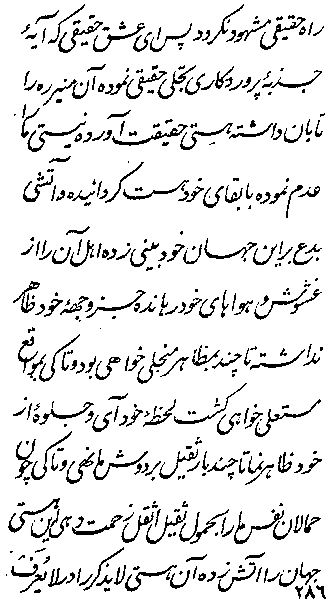 راه حقیقی مشهود نکردد پس ای عشق حقیقی که آیهٔ
جذبهٔ پروردکاری تجلی حقیقی نموده آن منیر ره را
تابان داشته هستی حقیقت آورده نیستی ما
عدم نموده با بقای خود هست کردانیده و آتشی
بدع براین جهان خود بینی زده اهل آن را از
و هواهای خود رهانده جز وجههٔ خود ظاهر
نداشته تا چند بمظاهر متجلی خواهی بود و تا کی بمواقع
مستعلی خواهی کشت لحظهٔ خود آی و جلوهٔ از
خود ظاهر نما تا چند بار ثقیل بر دوش ما نهی و تا کی چون
حمالان نفس ما را بحمول ثقیل اثقل زحمت دهی این هستی
جهان را آتش زده آن هستی لایذکر را در لا یعرف
۲۸۶